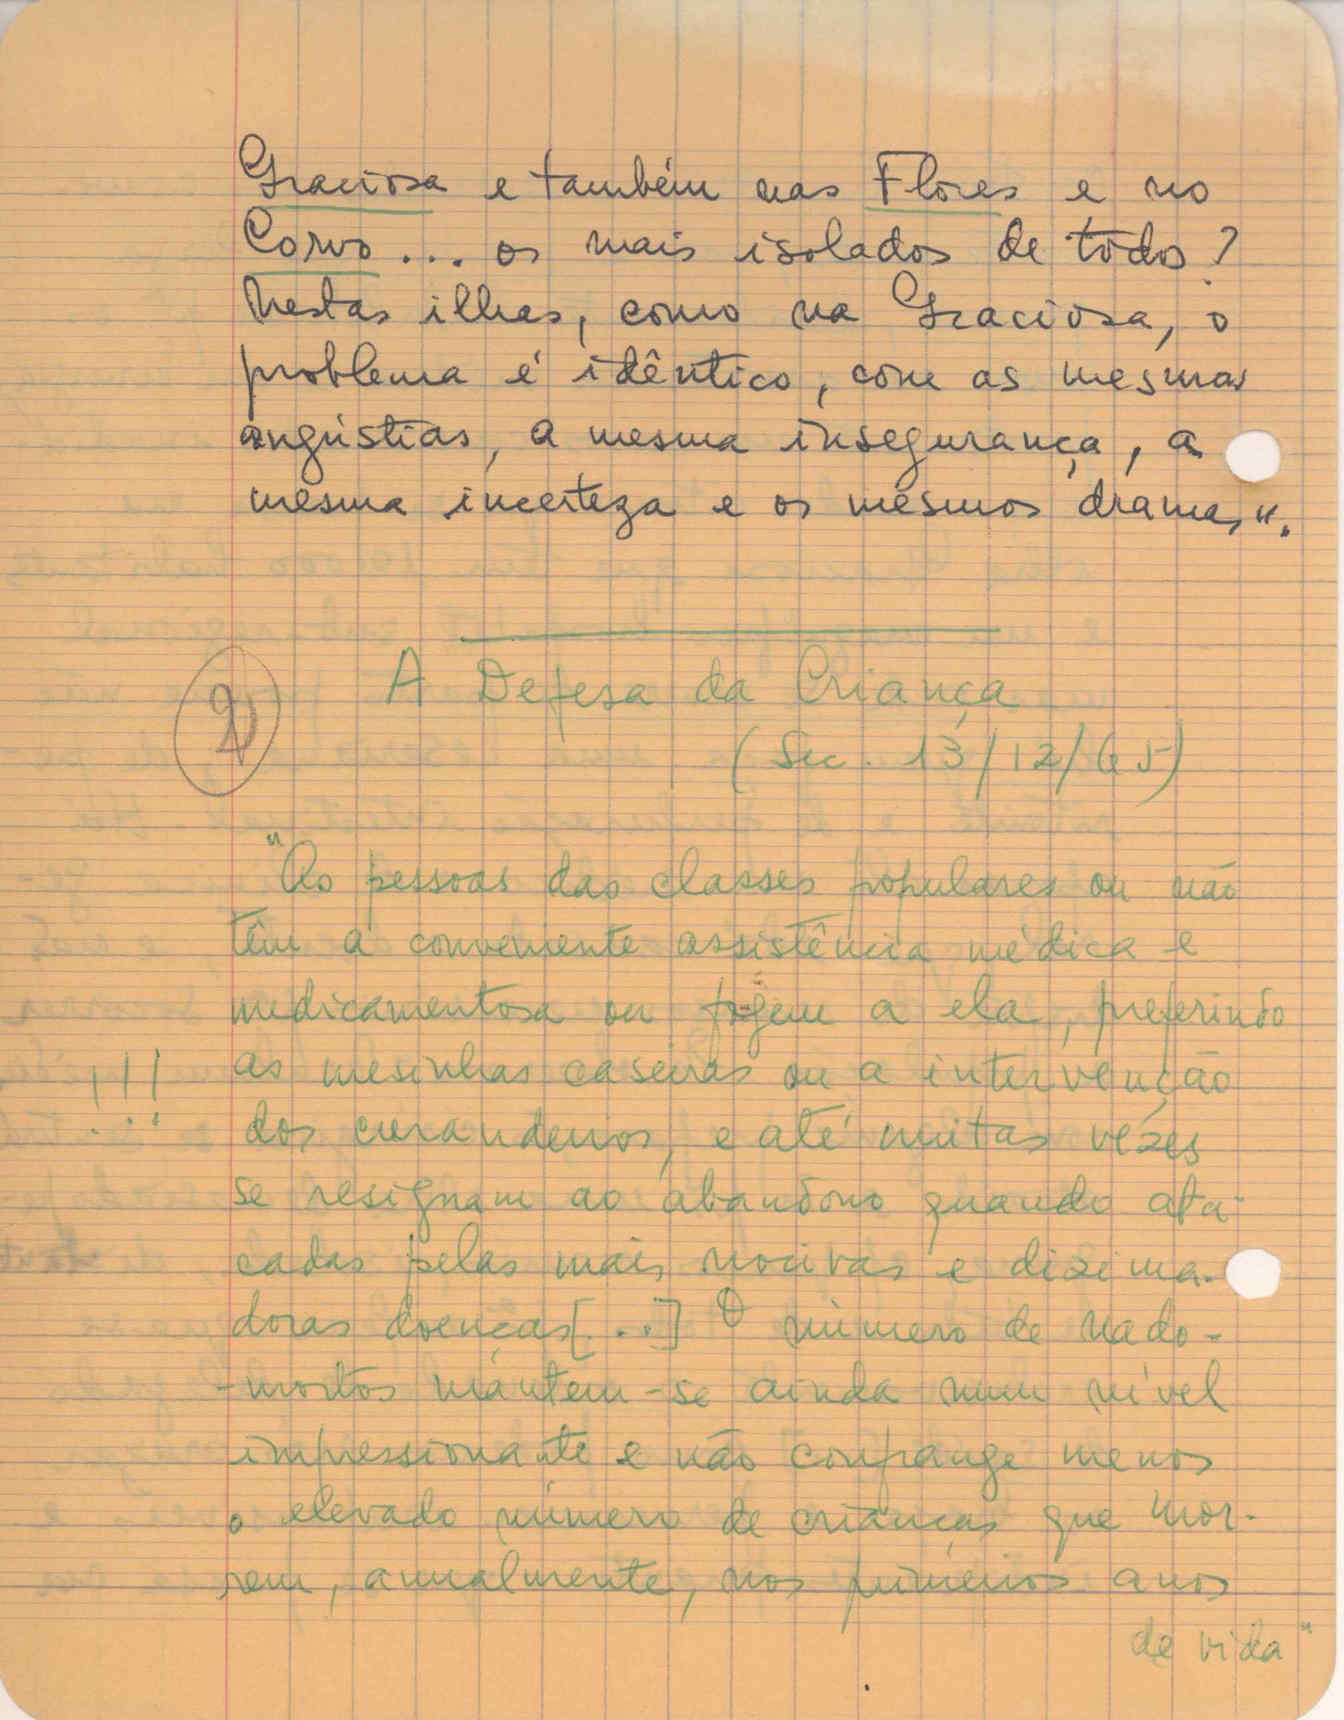 Graciosa e também nas Flores e no
Corvo... os mais isolados de todos?
Nestas ilhas, como na Graciosa, o
problema é idêntico, com as mesmas
angústias, a mesma insegurança, a
mesma incerteza e os mesmos dramas".
2)
A Defesa da Criança
(Sec. 13/12/65)
"As pessoas das classes populares ou não
têm a conveniente assistência médica e
medicamentosa ou fogem a ela, preferindo
as mesinhas caseiras ou a intervenção
!!!
dos curandeiros, e até muitas vezes
se resignam ao abandono quando ata-
cadas pelas mais nocivas e dizima-
doras doenças[...] O número de nado-
-mortos mantem-se ainda num nível
impressionante e não confrange menos
o elevado número de crianças que mor-
rem, anualmente, nos primeiros anos
de vida"